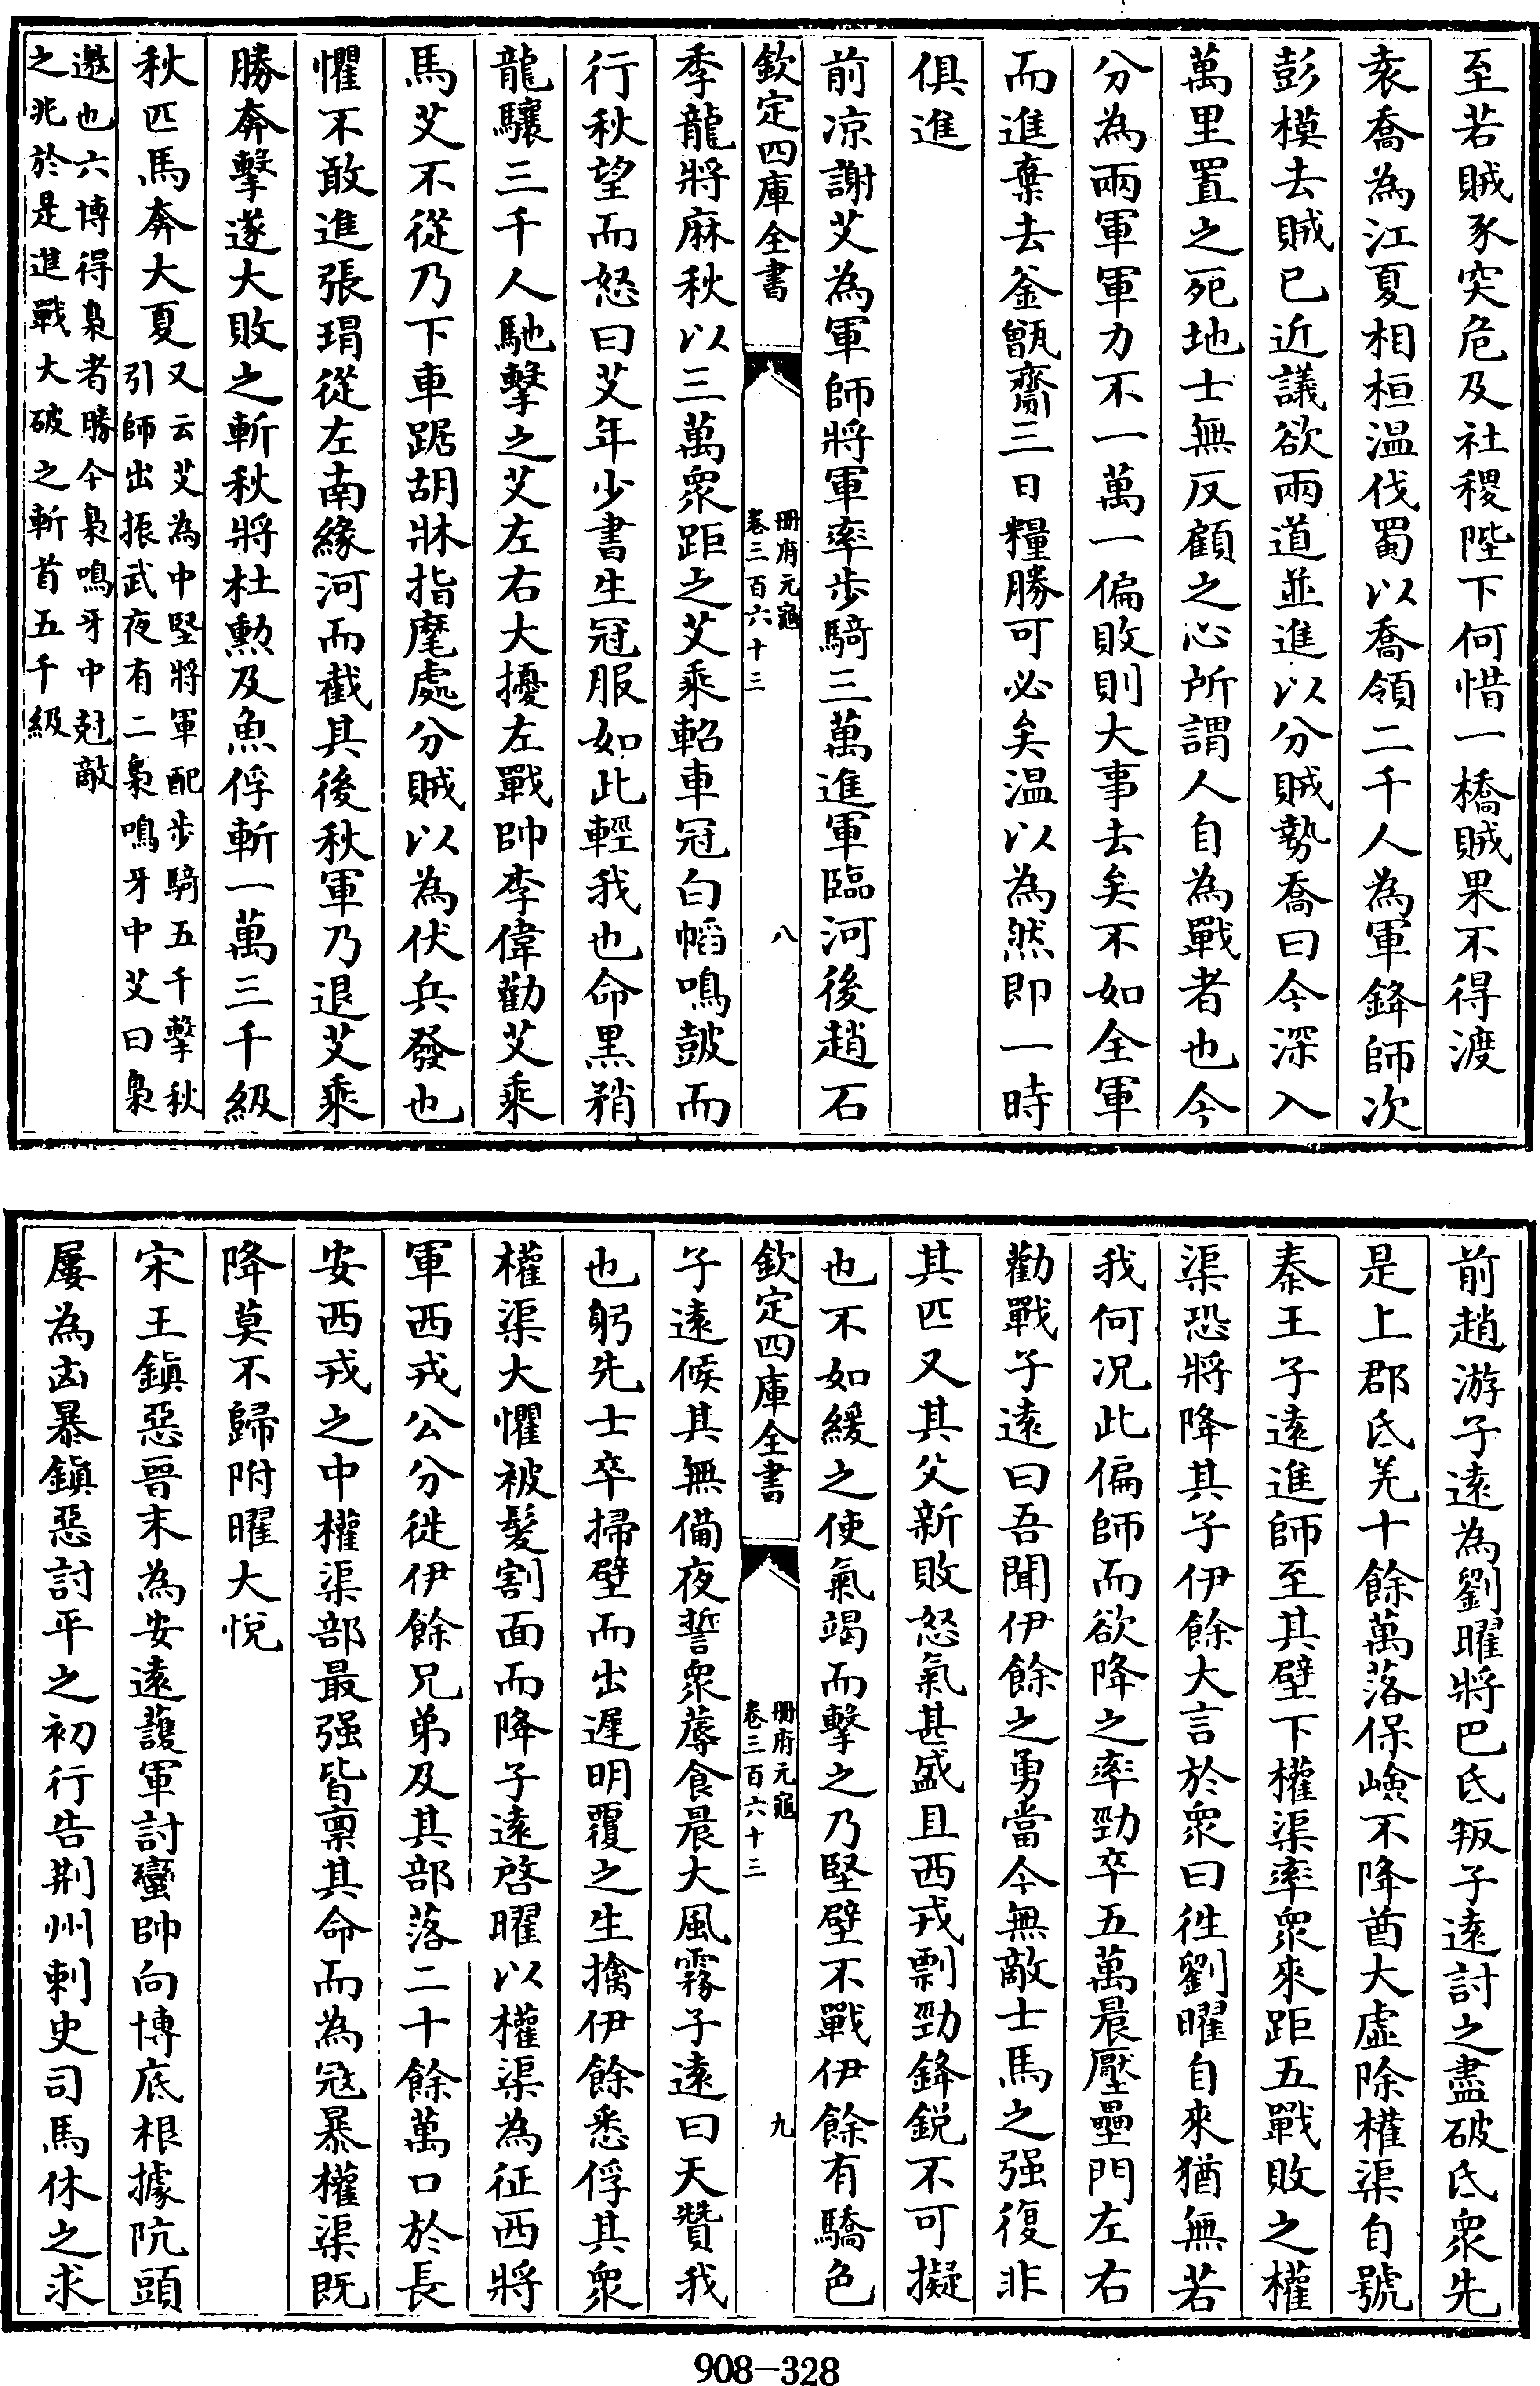 至若賊豕突危及社稷陛下何惜一橋賊果不得渡
袁喬為江夏相桓溫伐蜀以喬領二千人為軍鋒師次
彭模去賊已近議欲兩道並進以分賊勢喬曰今深入
萬里置之死地士無反顧之心所謂人自為戰者也今
分為兩軍軍力不一萬一偏敗則大事去矣不如全軍
而進棄去釜甑齎三日糧勝可必矣温以為然即一時
俱進
前涼謝艾為軍師將軍率步騎三萬進軍臨河後趙石
欽定四庫全書
冊府元龜
卷三百六十三
八
季龍將麻秋以三萬衆距之艾乘軺車冠白幍鳴鼓而
行秋望而怒曰艾年少書生冠服如此輕我也命黑矟
龍驤三千人馳擊之艾左右大擾左戰帥李偉勸艾乘
馬艾不從乃下車踞胡牀指麾處分賊以為伏兵發也
懼不敢進張瑁從左南緣河而截其後秋軍乃退艾乘
勝奔擊遂大敗之斬秋將杜勲及魚俘斬一萬三千級
秋匹馬奔大夏
又云艾為中堅將軍配步騎五千擊秋
引師出振武夜有二梟鳴牙中艾曰梟
邀也六博得梟者勝今梟鳴牙中尅敵
之兆於是進戰大破之斬首五千級
前趙游子遠為劉曜將巴氐叛子遠討之盡破氐衆先
是上郡氐羌十餘萬落保嶮不降酋大虛除權渠自號
秦王子遠進師至其壁下權渠率衆來距五戰敗之權
渠恐將降其子伊餘大言於衆曰徃劉曜自來猶無若
我何況此偏師而欲降之率勁卒五萬晨壓壘門左右
勸戰子遠曰吾聞伊餘之勇當今無敵士馬之强復非
其匹又其父新敗怒氣甚盛且西戎剽勁鋒銳不可擬
也不如緩之使氣竭而擊之乃堅壁不戰伊餘有驕色
欽定四庫全書
冊府元龜
卷三百六十三
九
子遠候其無備夜誓衆蓐食晨大風霧子遠曰天贊我
也躬先士卒掃壁而出遲明覆之生擒伊餘悉俘其衆
權渠大懼被髮割面而降子遠啓曜以權渠為征西將
軍西戎公分徙伊餘兄弟及其部落二十餘萬口於長
安西戎之中權渠部最强皆禀其命而為冦暴權渠既
降莫不歸附曜大悅
宋王鎮惡晉末為安遠護軍討蠻帥向博底根據阬頭
屢為凶暴鎮惡討平之初行告荆州刺史司馬休之求
908-328